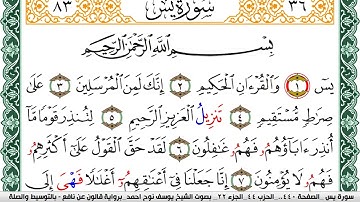 ٣٦ سُورَةُ يسٓ ٨٣
بِسْمِ اللَّهِ الرَّحْمَٰنِ الرَّحِيمِ
يسٓ ١ وَالْقُرْءَانِ الْحَكِيمِ ٢ إِنَّكَ لَمِنَ الْمُرْسَلِينَ ٣ عَلَىٰ
صِرَٰطٍ مُّسْتَقِيمٍ ٤ تَنزِيلُ الْعَزِيزِ الرَّحِيمِ ٥ لِتُنذِرَ قَوْمًا مَّا
أُنذِرَ ءَابَآؤُهُمْ فَهُمْ غَٰفِلُونَ ٦ لَقَدْ حَقَّ الْقَوْلُ عَلَىٰٓ أَكْثَرِهِمْ
فَهُمْ لَا يُؤْمِنُونَ ٧ إِنَّا جَعَلْنَا فِىٓ أَعْنَٰقِهِمْ أَغْلَٰلًا فَهْىَ إِلَى
سورة يس - الصفحة ٤٤٠ - الحزب ٤٤ - الجزء ٢٢ - بصوت الشيخ يوسف نوح احمد - برواية قالون عن نافع - بالتوسيط والصلة